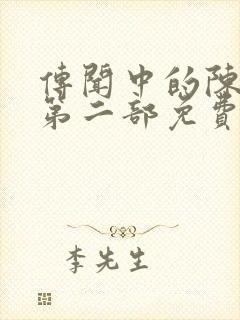 傳聞中的陳
第二部免費
李先生